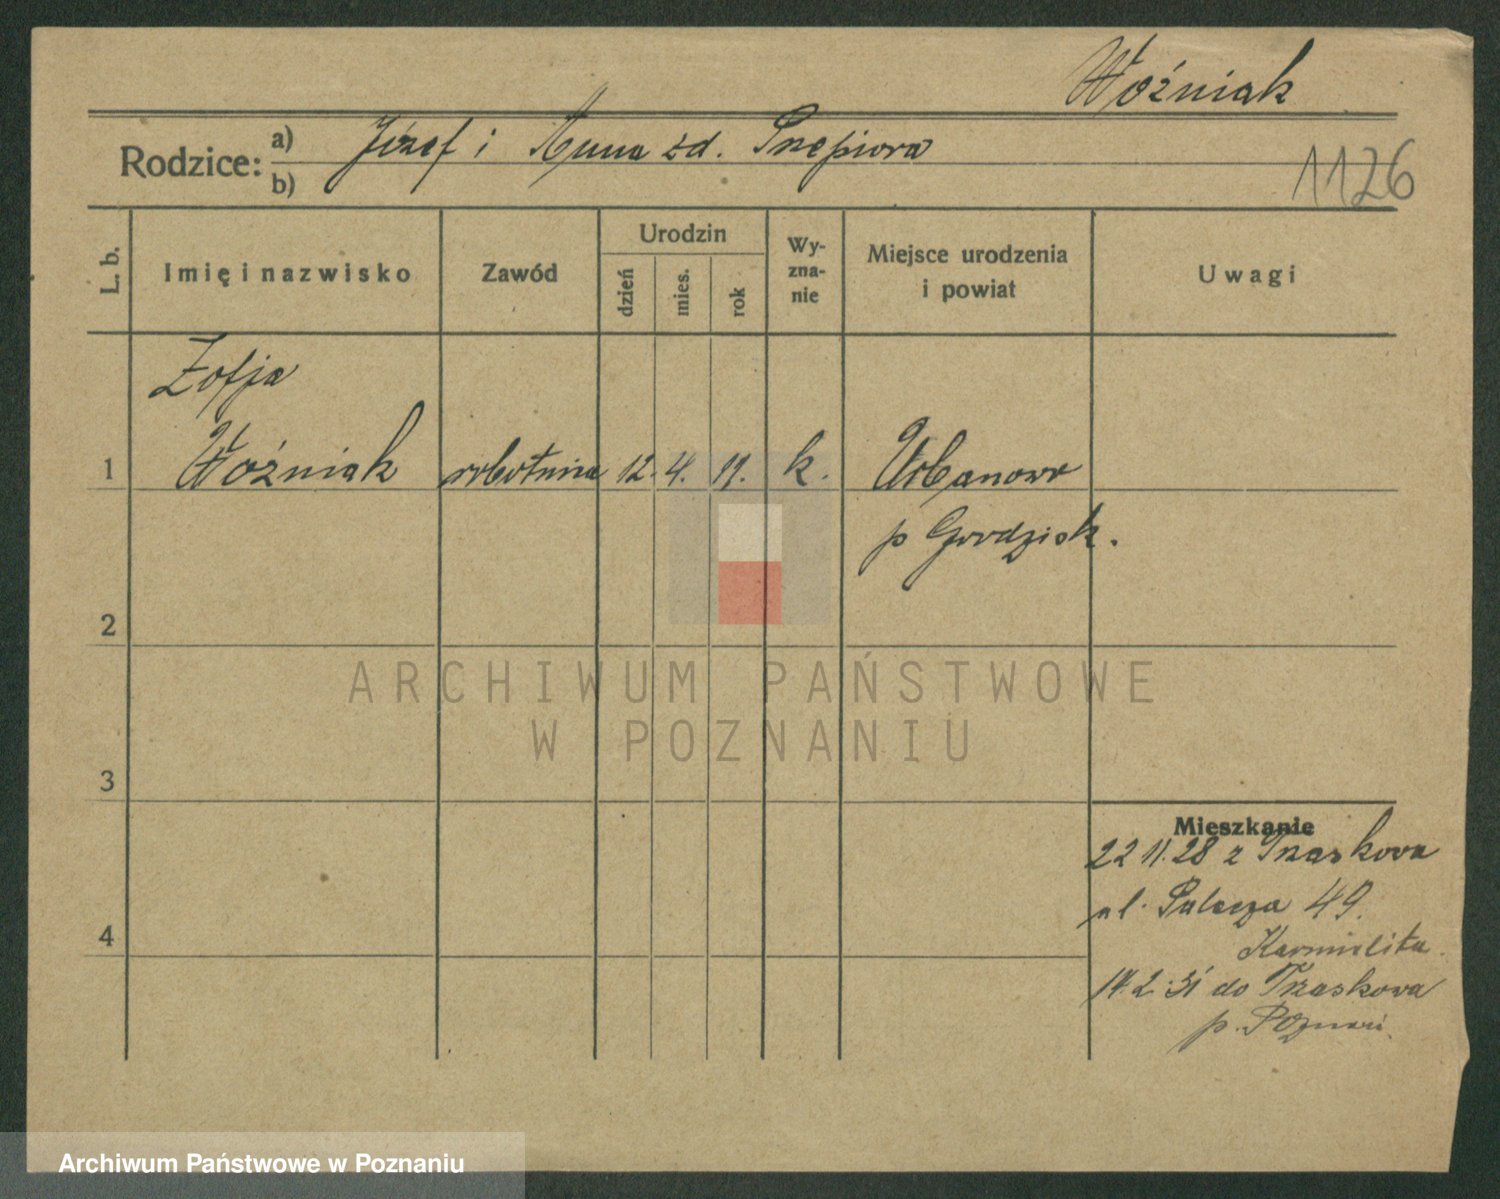 Woźniak
Rodzice: a) Józef i Anna zd. Szepiora
b)
1126
L. b.
Imię i nazwisko
Zawód
Urodzin
dzień
mies.
rok
Wy-
zna-
nie
Miejsce urodzenia
i powiat
Uwagi
Zofja
1 Woźniak robotnica 12. 4. 11. k. Urbanowo
p Grodzisk.
2
3
4
Mieszkanie
22 11. 28 z Trzaskowa
ul. Palacza 49.
Karmelita.
14. 2. 31 do Trzaskowa
p. Poznań.
ARCHIWUM PAŃSTWOWE
W POZNANIU
Archiwum Państwowe w Poznaniu